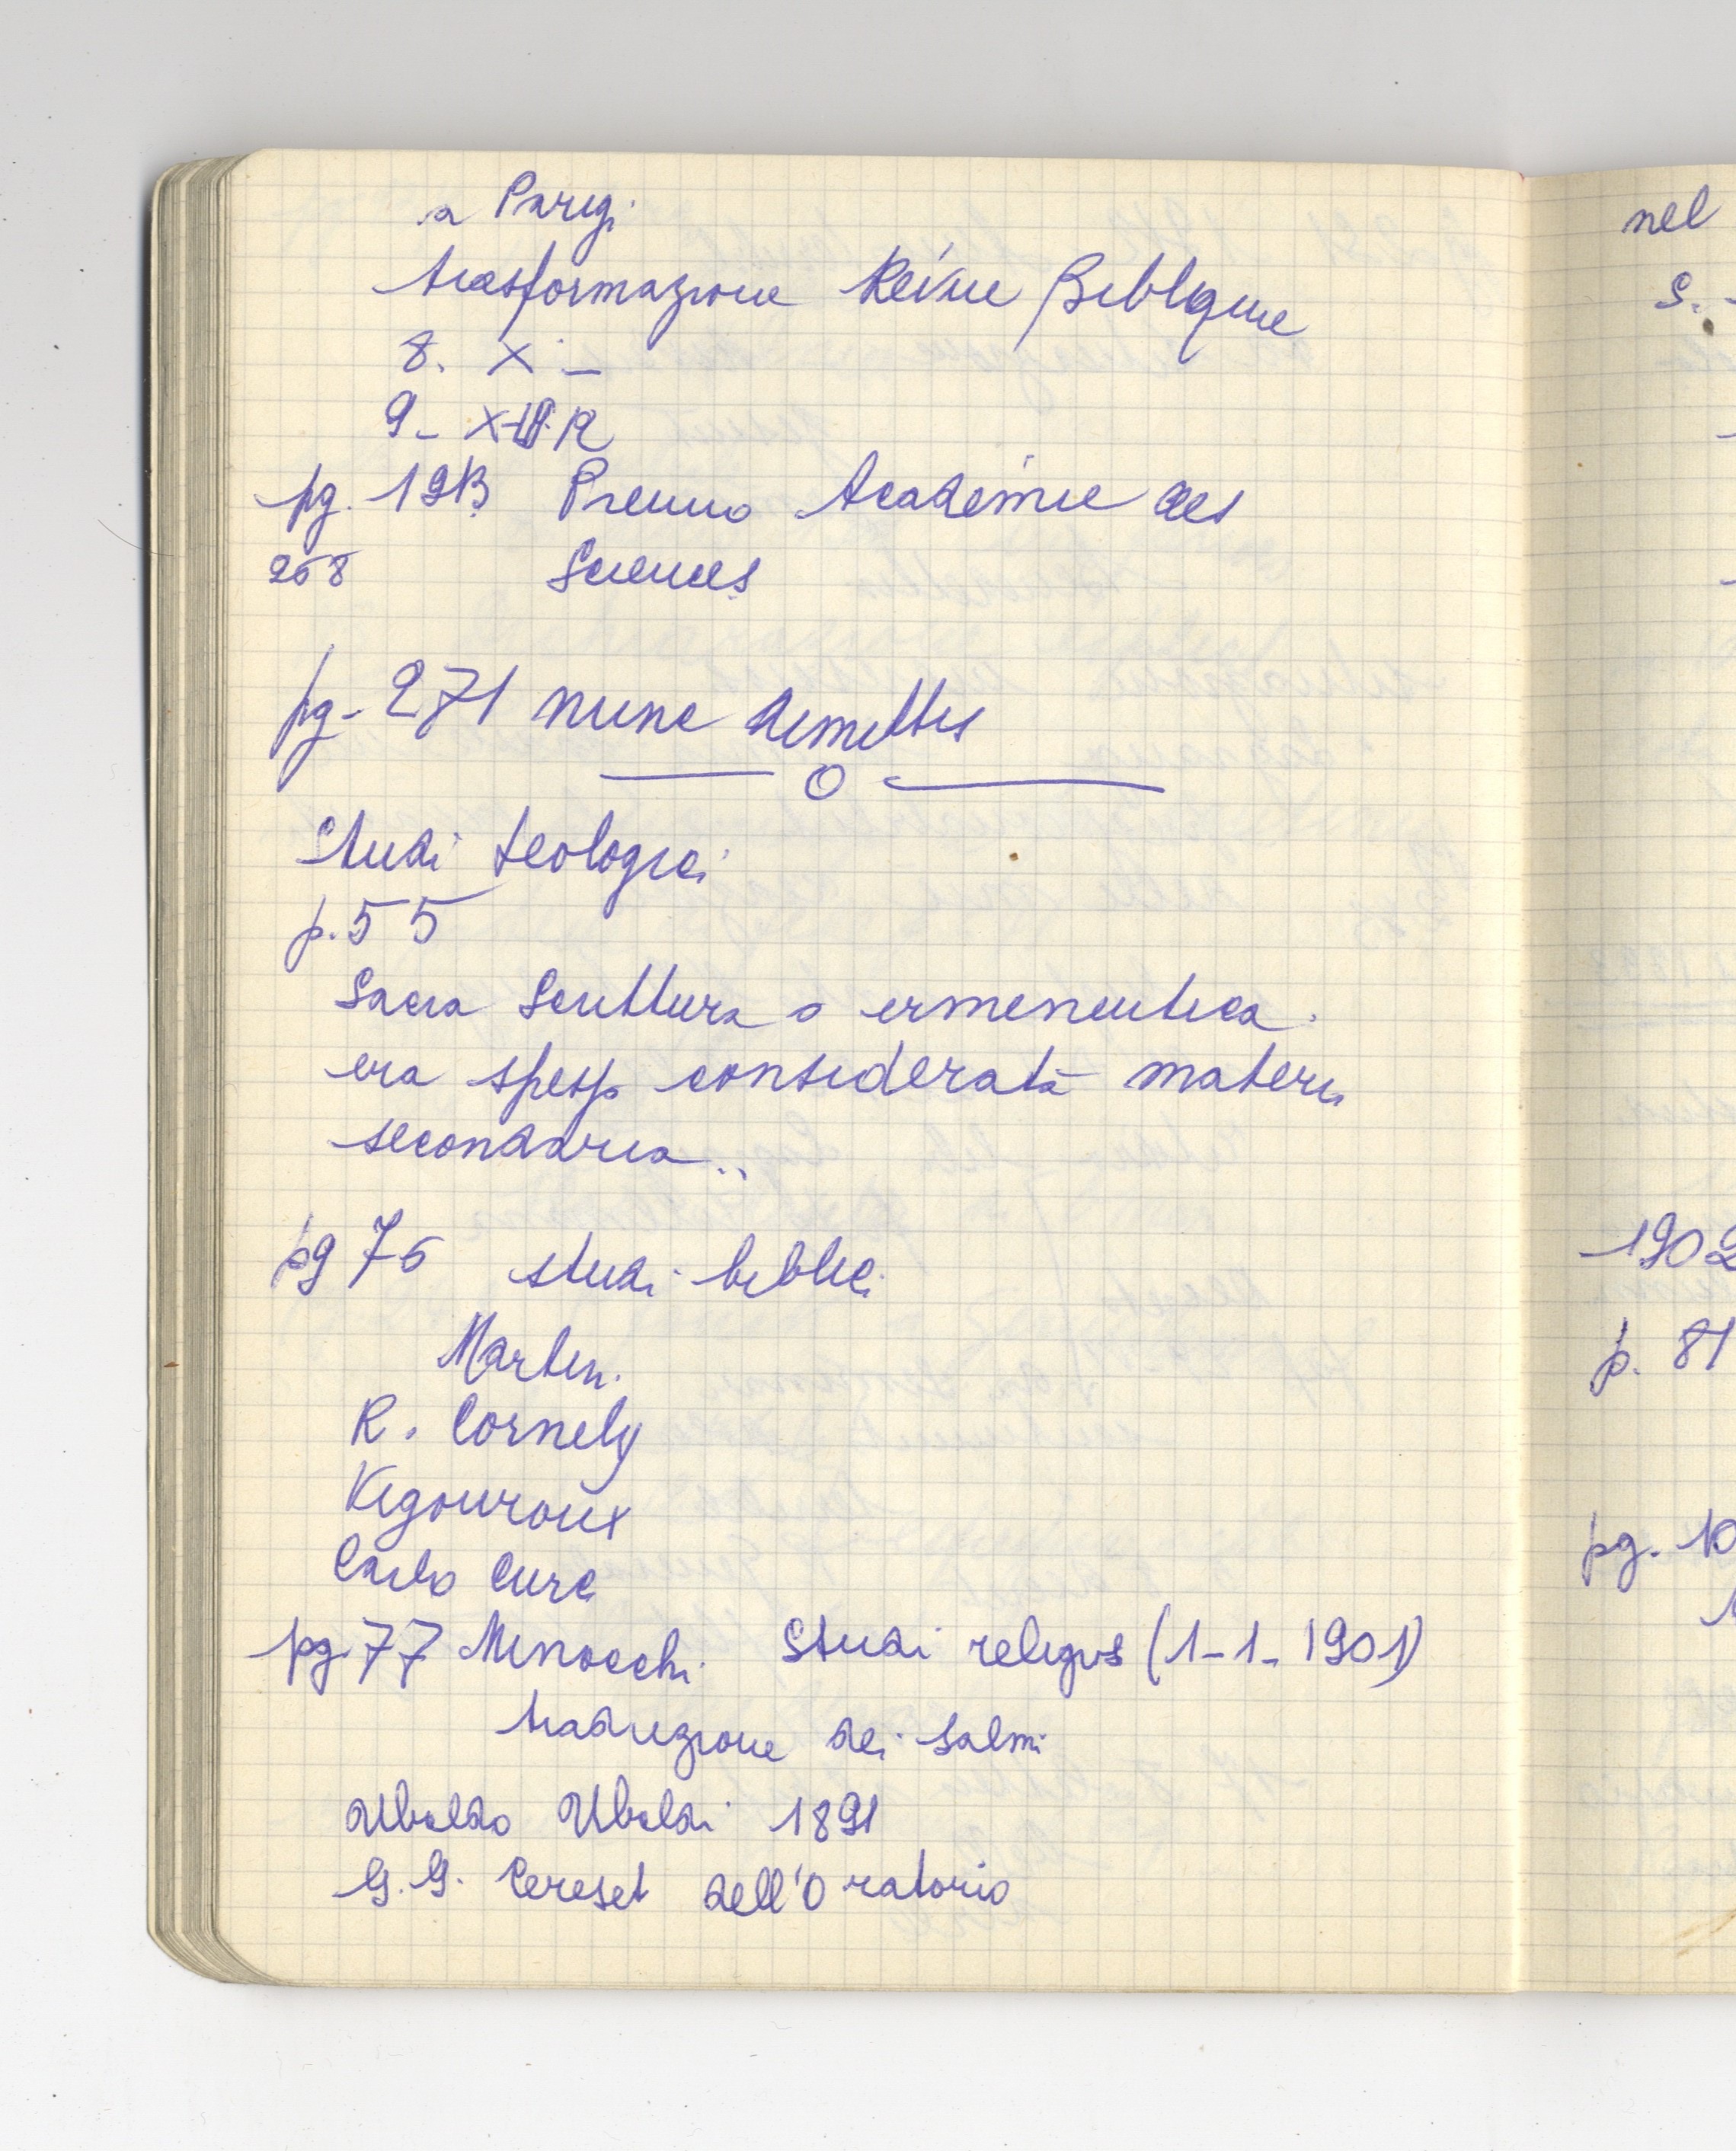 a Parigi
trasformazione Revue Biblique
8. X -
9 - XII R
pg. 193 Premio Académie des
268 Sciences
pg - 271 nunc dimittis
Studi teologici
p. 55
Sacra Scrittura o ermeneutica
era spesso considerata materia
secondaria..
pg 76 studi biblici
Martini
R. Cornely
Vigouroux
Carlo Curci
pg. 77 Minocchi Studi religiosi (1-1-1901)
traduzione dei Salmi
Ubaldo Ubaldi 1891
G. G. Cereseto dell'Oratorio
nel
S.
1902
p. 81
pg. 10